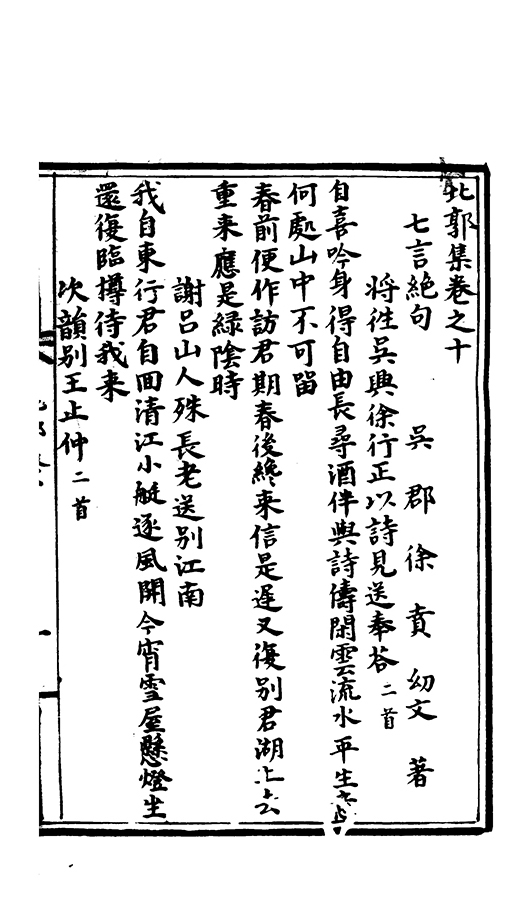 北郭集卷之十
七言絕句 吳郡徐賁幼文著
將往吳興徐行正以詩見送奉荅二首
自喜吟身得自由長尋酒伴與詩儔閑雲流水平生
何處山中不可留
春前便作訪君期春後纔来信是遲又復别君湖上去
重来應是綠陰時
謝吕山人殊長老送别江南
我自東行君自回清江小艇逐風開今宵雪屋懸燈坐
還復臨樽待我来
次韻别王止仲二首